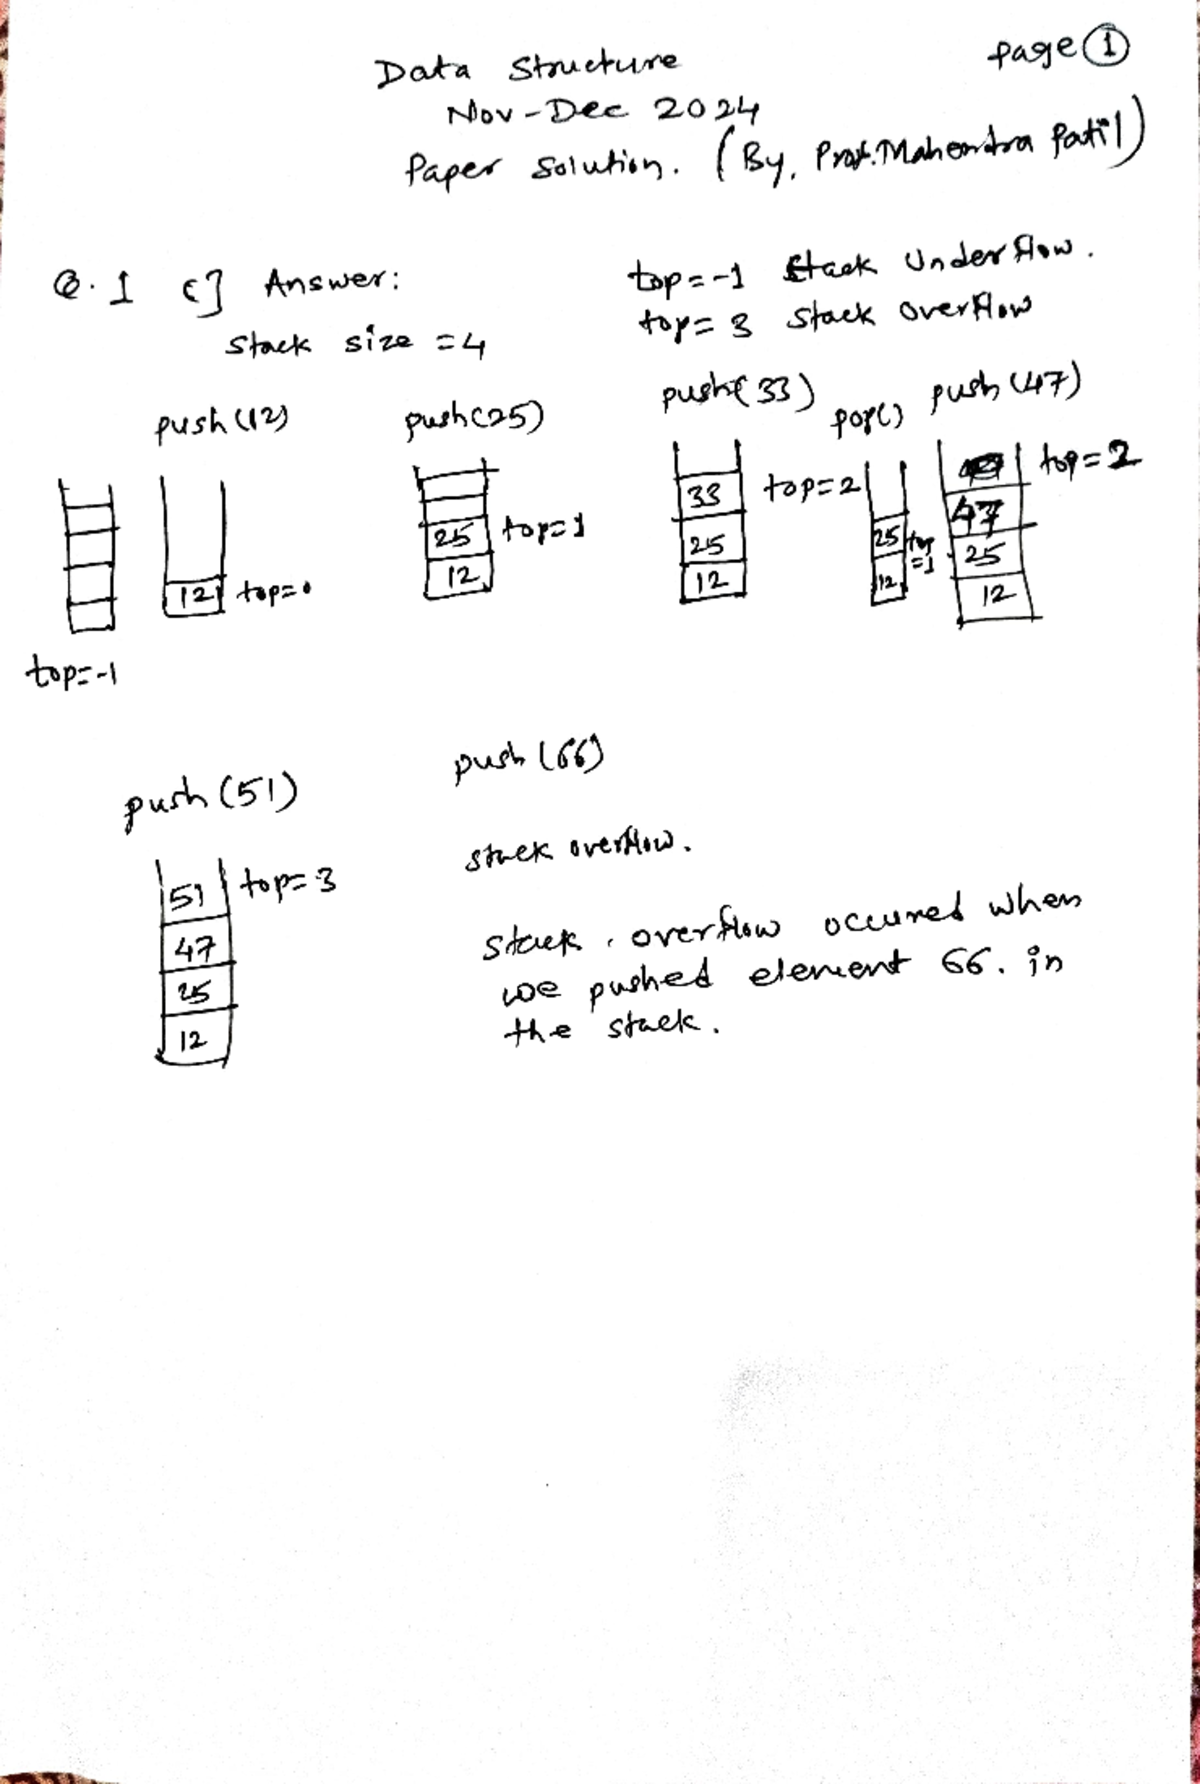 page ①
Data Structure
Nov-Dec 2024
Paper Solution. (By, Prof. Mahendra Patil)
Q.1 c] Answer:
top=-1 Stack Underflow.
top=3 Stack Overflow
Stack size =4
push(12)
push(25)
push(33)
pop()
push(47)
12 top=0
25 top=1
12
33 top=2
25
12
25 top
=1
12
top=2
47
25
12
top=-1
push(51)
push(66)
51 top=3
47
25
12
stack overflow.
stack overflow occured when
we pushed element 66. in
the stack.